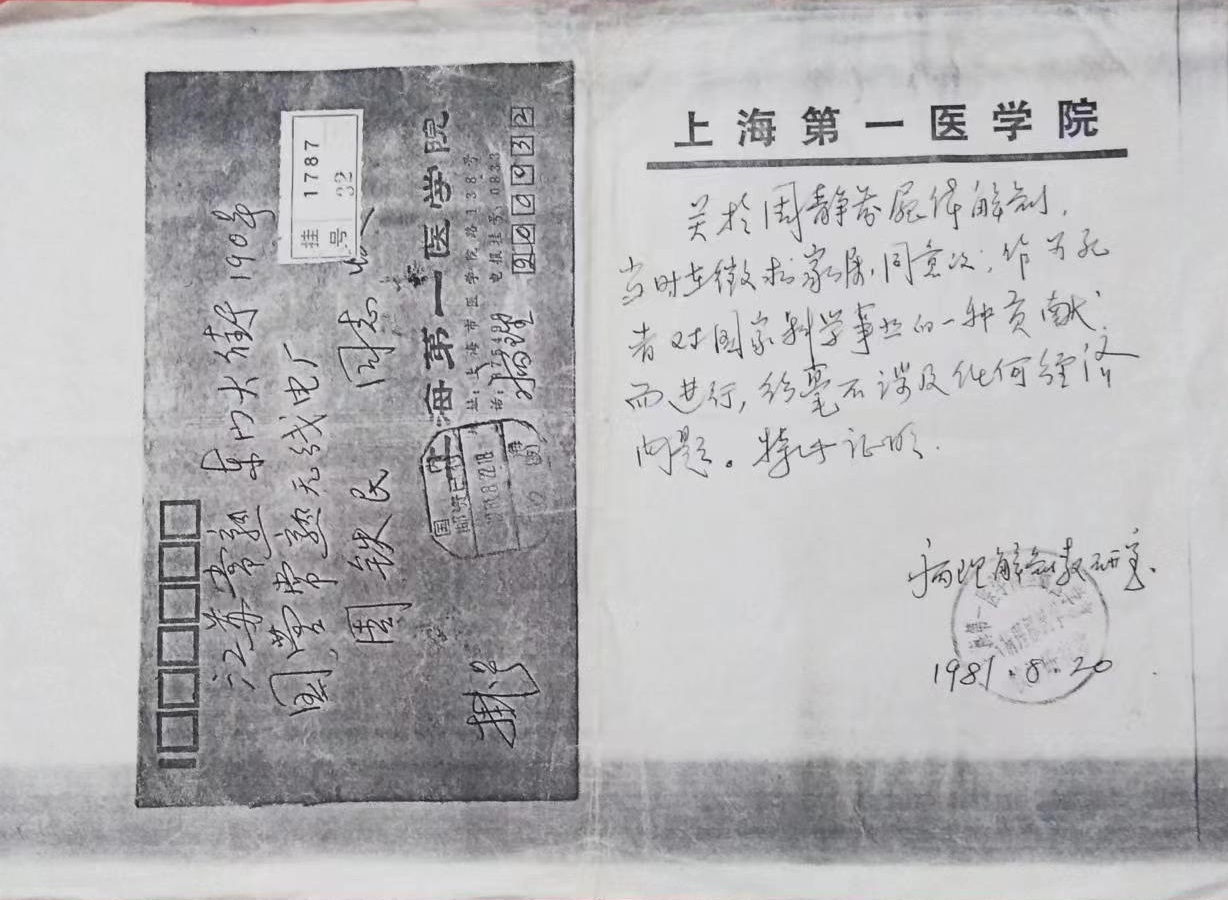 上海第一医学院
关于周静芬屍体解剖,
当时在徵求家属同意后,作为死
者对国家科学事业的一种贡献
而进行,丝毫不涉及任何经济
问题。特此证明.
病理解剖教研室.
1981.8.20
挂号 1787
32
江苏常熟东门大街190号
国营常熟无线电厂
周铁民 同志
上海第一医学院
址:上海市医学院路138号
电报挂号:0833
病理
200032
挂号